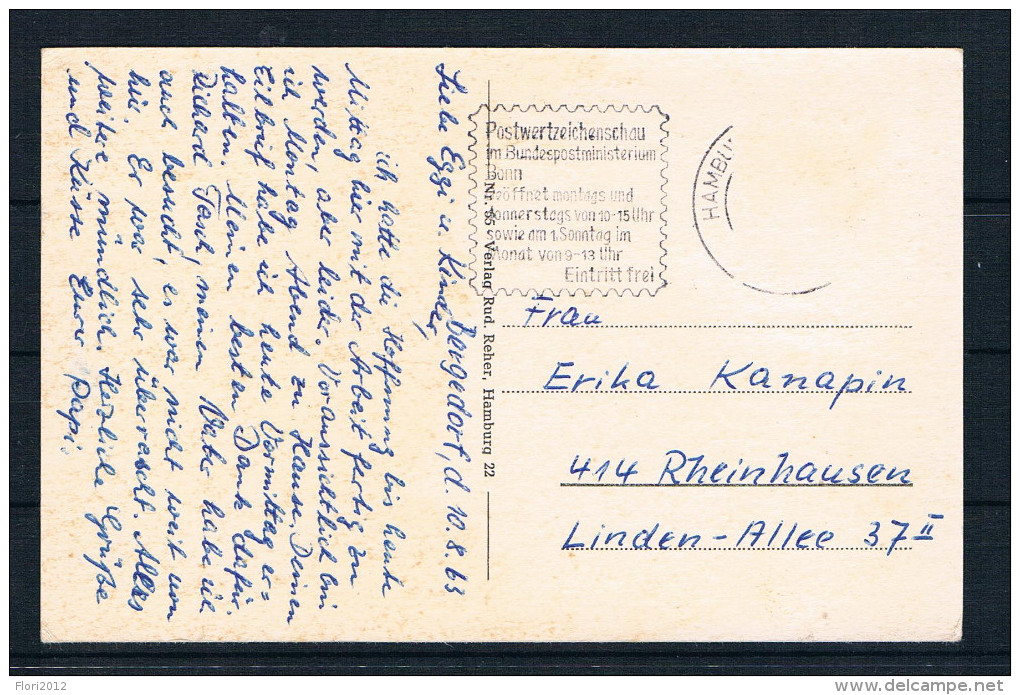 Bergedorf, d. 10.8.63
Liebe Eggi u. Kinder,
ich hatte die Hoffnung bis heute
Mittag hier mit der Arbeit fertig zu
werden, aber leider. Voraussichtlich bin
ich Montag Abend zu Hause. Deinen
Eilbrief habe ich heute Vormittag er=
halten. Meinen besten Dank dafür.
Richard Tasch, meinen Vater habe ich
auch besucht, es war nicht weit von
hier. Er war sehr überrascht. Alles
weitere mündlich. Herzliche Grüße
und Küsse Eurer Papi.
Nr. 95 Verlag Rud. Reher, Hamburg 22
Postwertzeichenschau
im Bundespostministerium
Bonn
Geöffnet montags und
donnerstags von 10-15 Uhr
sowie am 1. Sonntag im
Monat von 9-13 Uhr
Eintritt frei
HAMBU
Frau
Erika Kanapin
414 Rheinhausen
Linden-Allee 37 II
Flori2012
delcampe.net